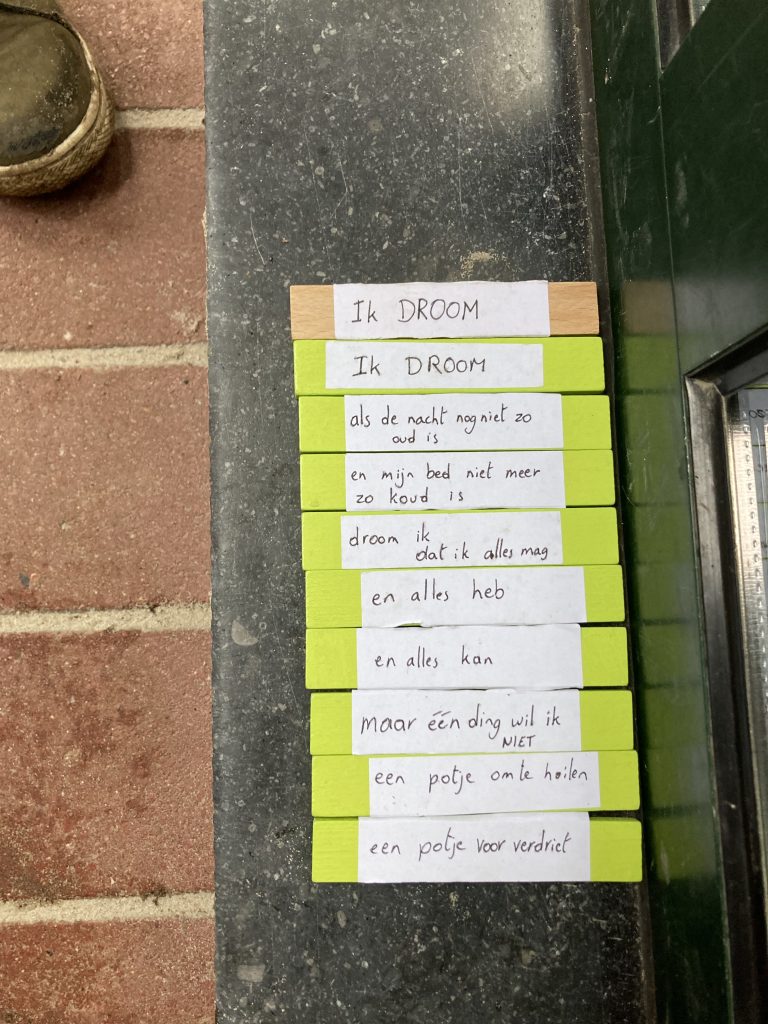 Ik DROOM
Ik DROOM
als de nacht nog niet zo
oud is
en mijn bed niet meer
zo koud is
droom ik
dat ik alles mag
en alles heb
en alles kan
maar één ding wil ik
NIET
een potje om te hoilen
een potje voor verdriet